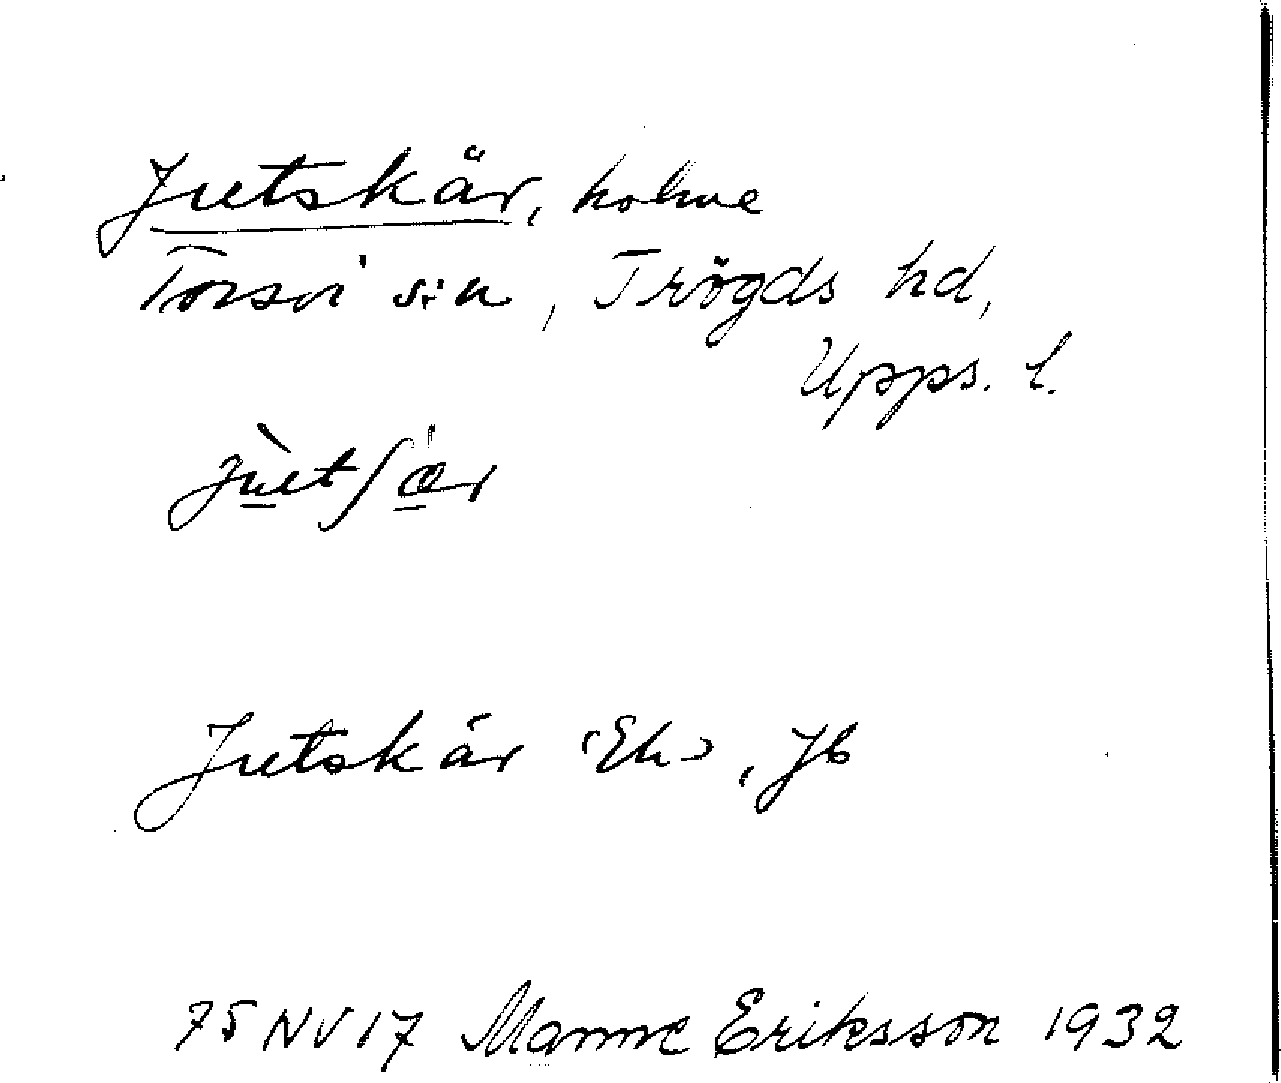 Jutskär, holme
Torsvi s:n, Trögds hd,
Upps. l.
Jutskär (Ek), Jb
75 NV 17 Manne Eriksson 1932